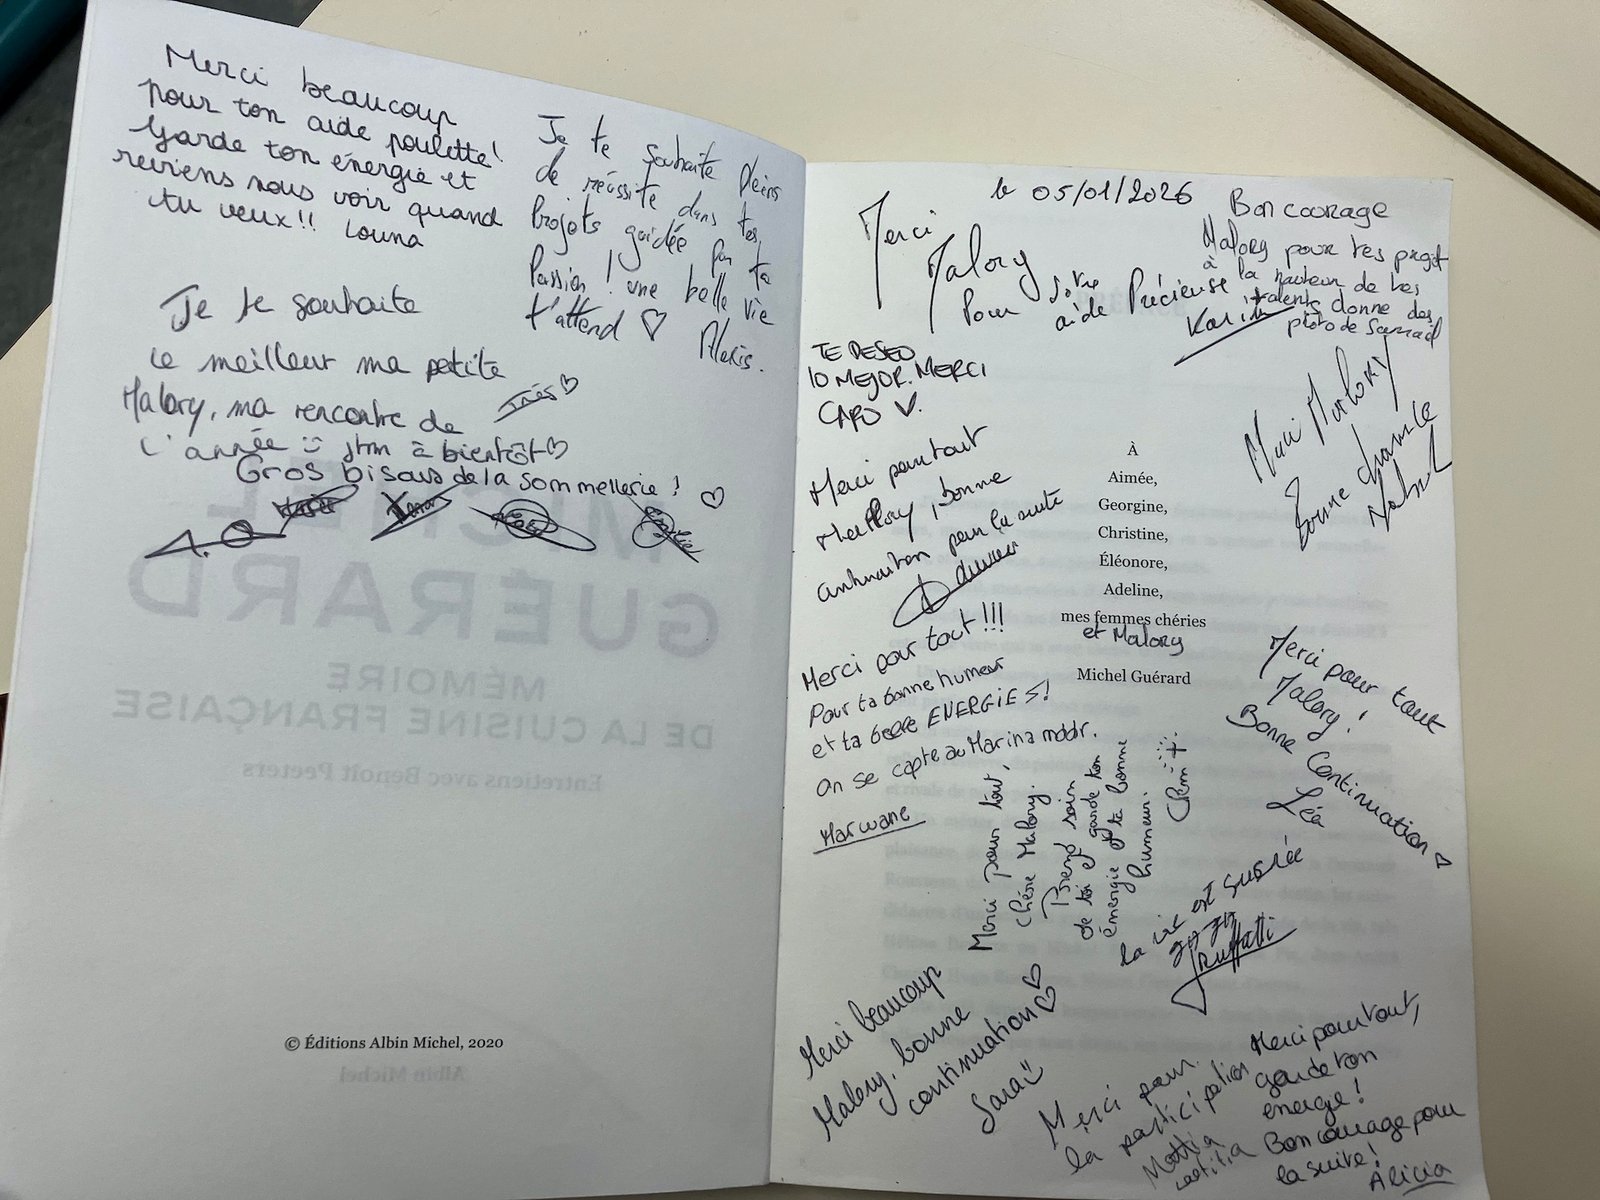 Merci beaucoup
pour ton aide poulette!
Garde ton énergie et
reviens nous voir quand
tu veux!! Louna
Je te souhaite pleins
de réussite dans tes
Projets guidée par ta
Passion! une belle vie
t'attend ♡ Alexis.
Je te souhaite
le meilleur ma petite
Malory, ma rencontre de
l'année jtm à bientôt ♡
Inès ♡
Gros bisous de la sommellerie! ♡
MICHEL
GUÉRARD
MÉMOIRE
DE LA CUISINE FRANÇAISE
Entretiens avec Benoît Peeters
© Éditions Albin Michel, 2020
Albin Michel
le 05/01/2026
Merci
Malory
Pour votre
aide Précieuse
Bon courage
Malory pour tes projet
à la hauteur de tes
talents, donne des
photo de Samuel
Karim
TE DESEO
lO MEJOR. MERCI
CARO
Merci Malory
Bonne chance
Merci pour tout
Mallory, bonne
continuation pour la suite
À
Aimée,
Georgine,
Christine,
Éléonore,
Adeline,
mes femmes chéries
et Malory
Michel Guérard
Merci pour tout!!!
Pour ta bonne humeur
et ta belle ENERGIES!
On se capte au Marina mddr.
Marwane
Merci pour tout
Malory!
Bonne Continuation ♡
Léa
Merci pour tout,
chère Malory.
Prend soin
de toi et garde ton
énergie et ta bonne
humeur.
la vie est sucrée
Merci beaucoup
Malory, bonne
continuation ♡♡
Sara
Merci pour
la participation
Mattia
Laetitia
Merci pour tout,
garde ton
énergie!
Bon courage pour
la suite!
Alicia